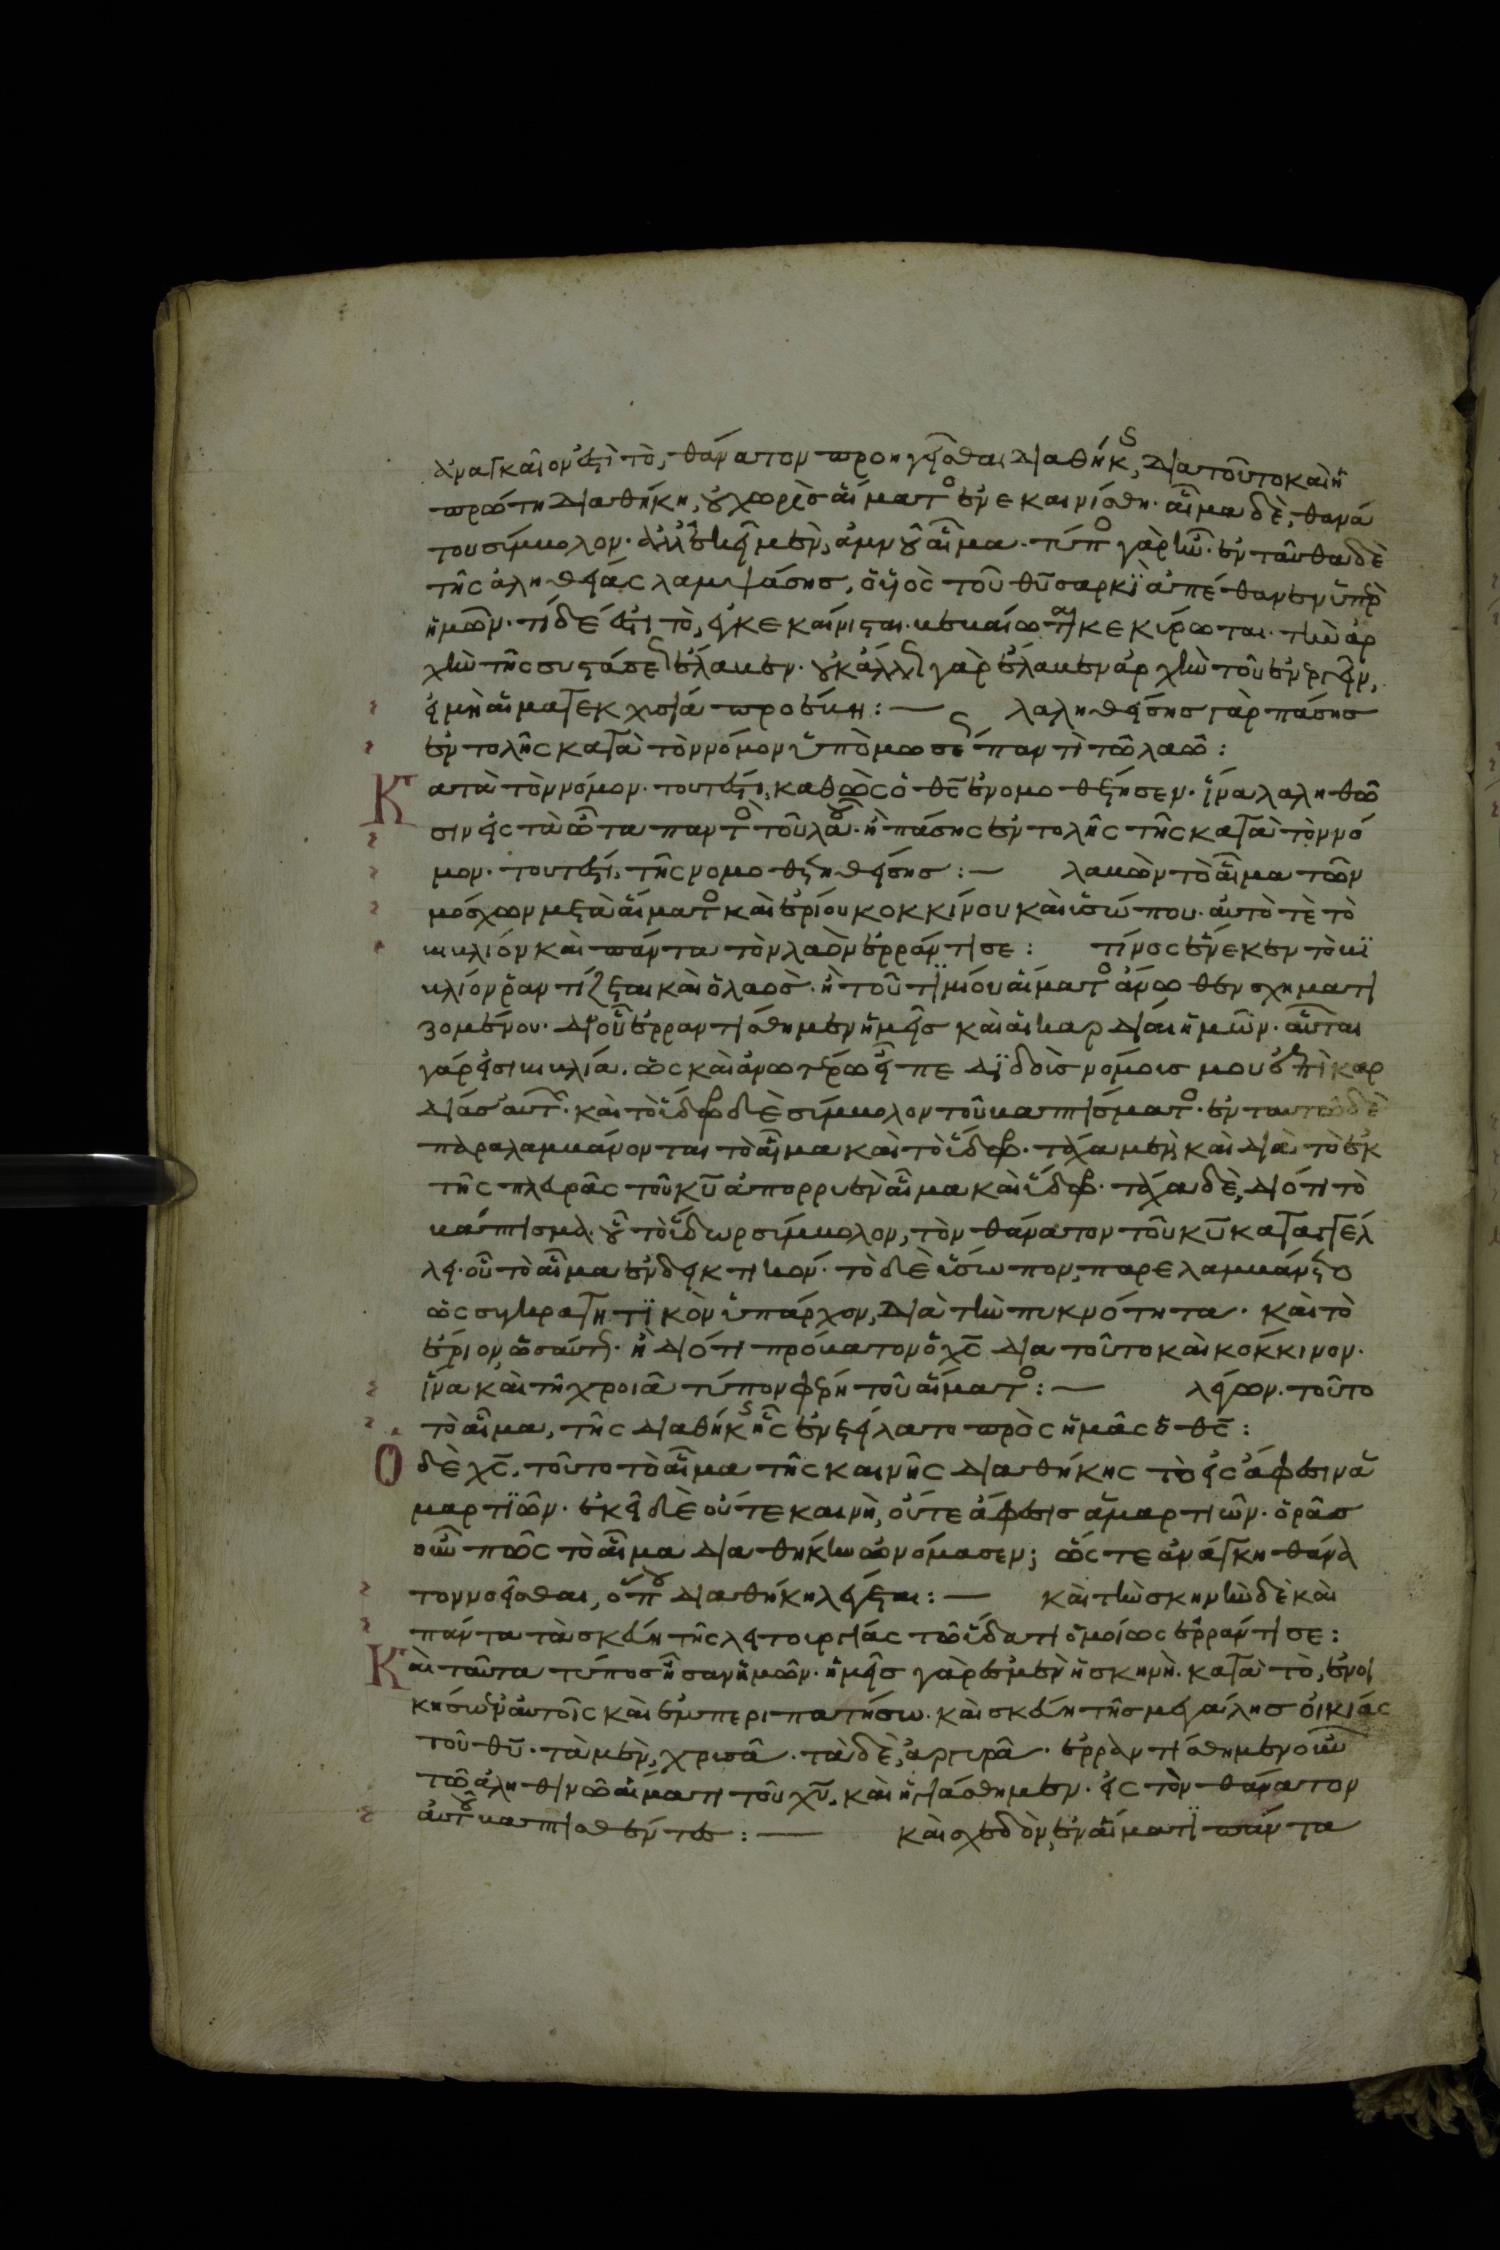 ἀναγκαῖον ἐστὶ τὸ, θάνατον προηγεῖσθαι διαθήκης, διατοῦτο καὶ ἡ
πρώτη διαθήκη, οὐ χωρὶς αἵματος ἐνεκαινίσθη· αἷμα δὲ, θανά
του σύμβολον· ἀλλ' ἐκεῖ μὲν, ἀμνοῦ αἷμα· τύπος γὰρ ἦν· ἐνταῦθα δὲ
τῆς ἀληθείας λαμψάσης, ὁ υἱὸς τοῦ θυ σαρκὶ ἀπέθανεν ὑπὲρ
ἡμῶν· τί δέ ἐστι τὸ, ἐγκεκαίνισται· βεβαίωται κεκύρωται· τὴν ἀρ
χὴν τῆς συστάσεως ἔλαβεν· οὐκ ἄλλως γὰρ ἔλαβεν ἀρχὴν τοῦ ἐνεργεῖν,
εἰ μὴ αἵματος ἐκχυσία προέβη: — λαληθείσης γὰρ πάσης
ἐντολῆς κατὰ τὸν νόμον ὑπὸ μωσέως παντὶ τῶ λαῶ:
Κατὰ τὸν νόμον· τουτέστι, καθὼς ὁ θς ἐνομοθέτησεν· ἵνα λαληθῶ
σιν εἰς τὰ ὦτα παντὸς τοῦ λαοῦ· ἢ πάσης ἐντολῆς τῆς κατὰ τὸν νό
μον· τουτέστι, τῆς νομοθετηθείσης: — λαβὼν τὸ αἷμα τῶν
μόσχων μετὰ αἵματος καὶ ἐρίου κοκκίνου καὶ ὑσώπου· αὐτὸ τὲ τὸ
βιβλίον καὶ πάντα τὸν λαὸν ἐρράντισε: τίνος ἕνεκεν τὸ βι
βλίον ῥαντίζεται καὶ ὁ λαὸς· ἢ τοῦ τιμίου αἵματος ἄνωθεν σχηματι
ζομένου· δι' οὗ ἐρραντίσθημεν ἡμεῖς καὶ αἱ καρδίαι ἡμῶν· αὗται
γάρ εἰσι βιβλία. ὡς καὶ ἀνωτέρω εἶπε διδοὺς νόμους μου ἐπὶ καρ
δίας αὐτῶν· καὶ τὸ ὕδωρ δὲ σύμβολον τοῦ βαπτίσματος· ἐν ταυτῶ δὲ
παραλαμβάνονται τὸ αἷμα καὶ τὸ ὕδωρ· τάχα μὲν καὶ διὰ τὸ ἐκ
τῆς πλευρᾶς τοῦ κυ ἀπορρυὲν αἷμα καὶ ὕδωρ· τάχα δὲ, διότι τὸ
βάπτισμα οὗ τὸ ὕδωρ σύμβολον, τὸν θάνατον τοῦ κυ καταγγέλ
λει· οὗ τὸ αἷμα ἐνδεικτικόν· τὸ δὲ ὕσωπον, παρελαμβάνετο
ὡς συγκρατητικὸν ὑπάρχον, διὰ τὴν πυκνότητα· καὶ τὸ
ἔριον, ὡσαύτως· ἢ διότι πρόβατον ὁ χς διατοῦτο καὶ κόκκινον·
ἵνα καὶ τῆ χροιᾶ τύπον φέρη τοῦ αἵματος: — λέγων· τοῦτο
τὸ αἷμα, τῆς διαθήκης ἧς ἐνετείλατο πρὸς ἡμᾶς ὁ θς:
Ὁ δὲ χς. τοῦτο τὸ αἷμα τῆς καινῆς διαθήκης τὸ εἰς ἄφεσιν ἁ
μαρτιῶν· ἐκεῖ δὲ οὔτε καινὴ, οὔτε ἄφεσις ἁμαρτιῶν· ὁρᾶς
οὖν πῶς τὸ αἷμα διαθήκην ὠνόμασεν; ὥστε ἀνάγκη θάνα
τον νοεῖσθαι, ὅπου διαθήκη λέγεται: — καὶ τὴν σκηνὴν δὲ καὶ
πάντα τὰ σκεύη τῆς λειτουργίας τῶ ὕδατι ὁμοίως ἐρράντισε:
Καὶ ταῦτα τύπος ἦσαν ἡμῶν· ἡμεῖς γὰρ ἐσμὲν ἡ σκηνὴ· κατὰ τὸ, ἐνοι
κήσω ἐν αὐτοῖς καὶ ἐμπεριπατήσω· καὶ σκεύη τῆς μεγάλης οἰκίας
τοῦ θυ· τὰ μὲν, χρυσᾶ· τὰ δὲ, ἀργυρᾶ· ἐρραντίσθημεν οὖν
τῶ ἀληθινῶ αἵματι τοῦ χυ, καὶ ἡγιάσθημεν. εἰς τὸν θάνατον
αὐτοῦ βαπτισθέντες: — καὶ σχεδὸν, ἐν αἵματι πάντα